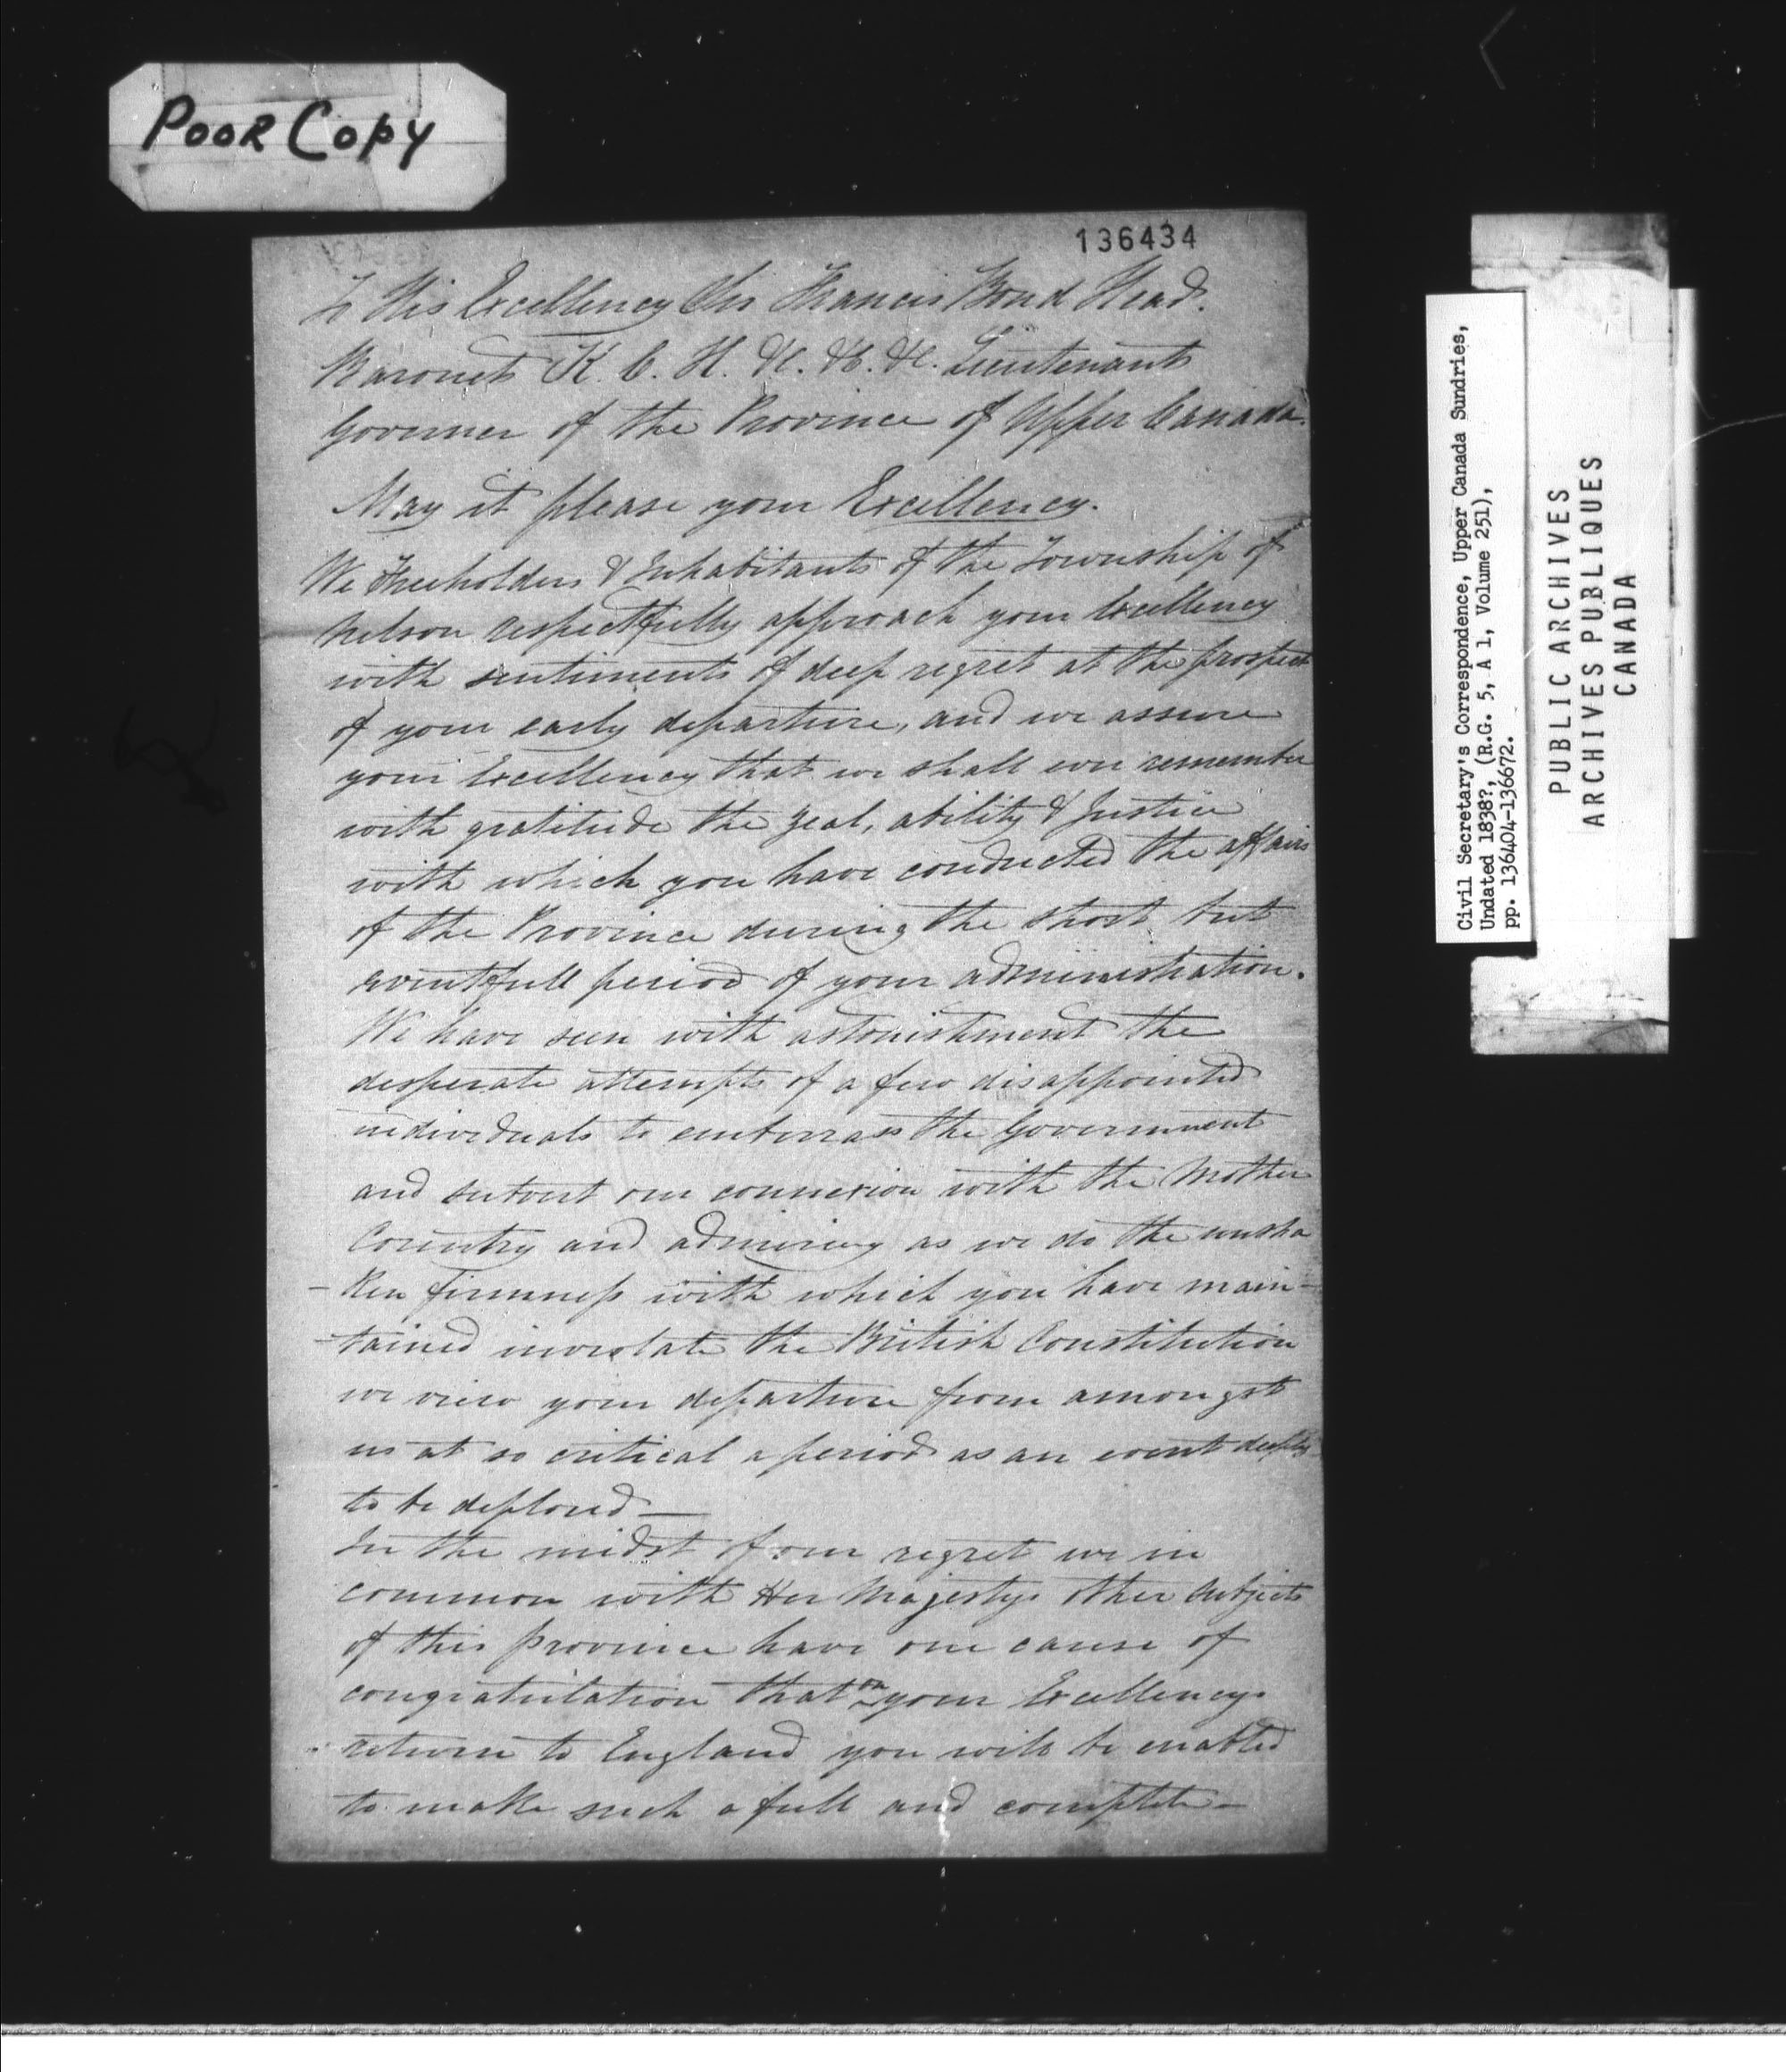 Poor Copy
136434
To His Excellency Sir Francis Bond Head.
Baronet K. C. H. &c. &c. &c. Lieutenant
Governer of the Province of Upper Canada.
May it please your Excellency.
We Freeholders & Inhabitants of the Township of
Nelson respectfully approach your Excellency
with sentiments of deep regret at the prospect
of your early departure, and we assure
your Excellency that we shall ever remember
with gratitude the Zeal, ability & Justice
with which you have conducted the affairs
of the Province during the short but
eventfull period of your administration.
We have seen with astonishment the
desperate attempts of a few disappointed
individuals to embarrass the Government
and subvert our connexion with the Mother
Country and admiring as we do the unsha
-ken firmness with which you have main-
-tained inviolate the British Constitution
we view your departure from amongst
us at so critical a period as an event deeply
to be deplored —
In the midst of our regret we in
common with Her Majestys other subjects
of this province have one cause of
congratulation that on your Excellencys
return to England you will be enabled
to make such a full and complete -
Civil Secretary's Correspondence, Upper Canada Sundries,
Undated 1838?, (R.G. 5, A 1, Volume 251),
pp. 136404-136672.
PUBLIC ARCHIVES
ARCHIVES PUBLIQUES
CANADA